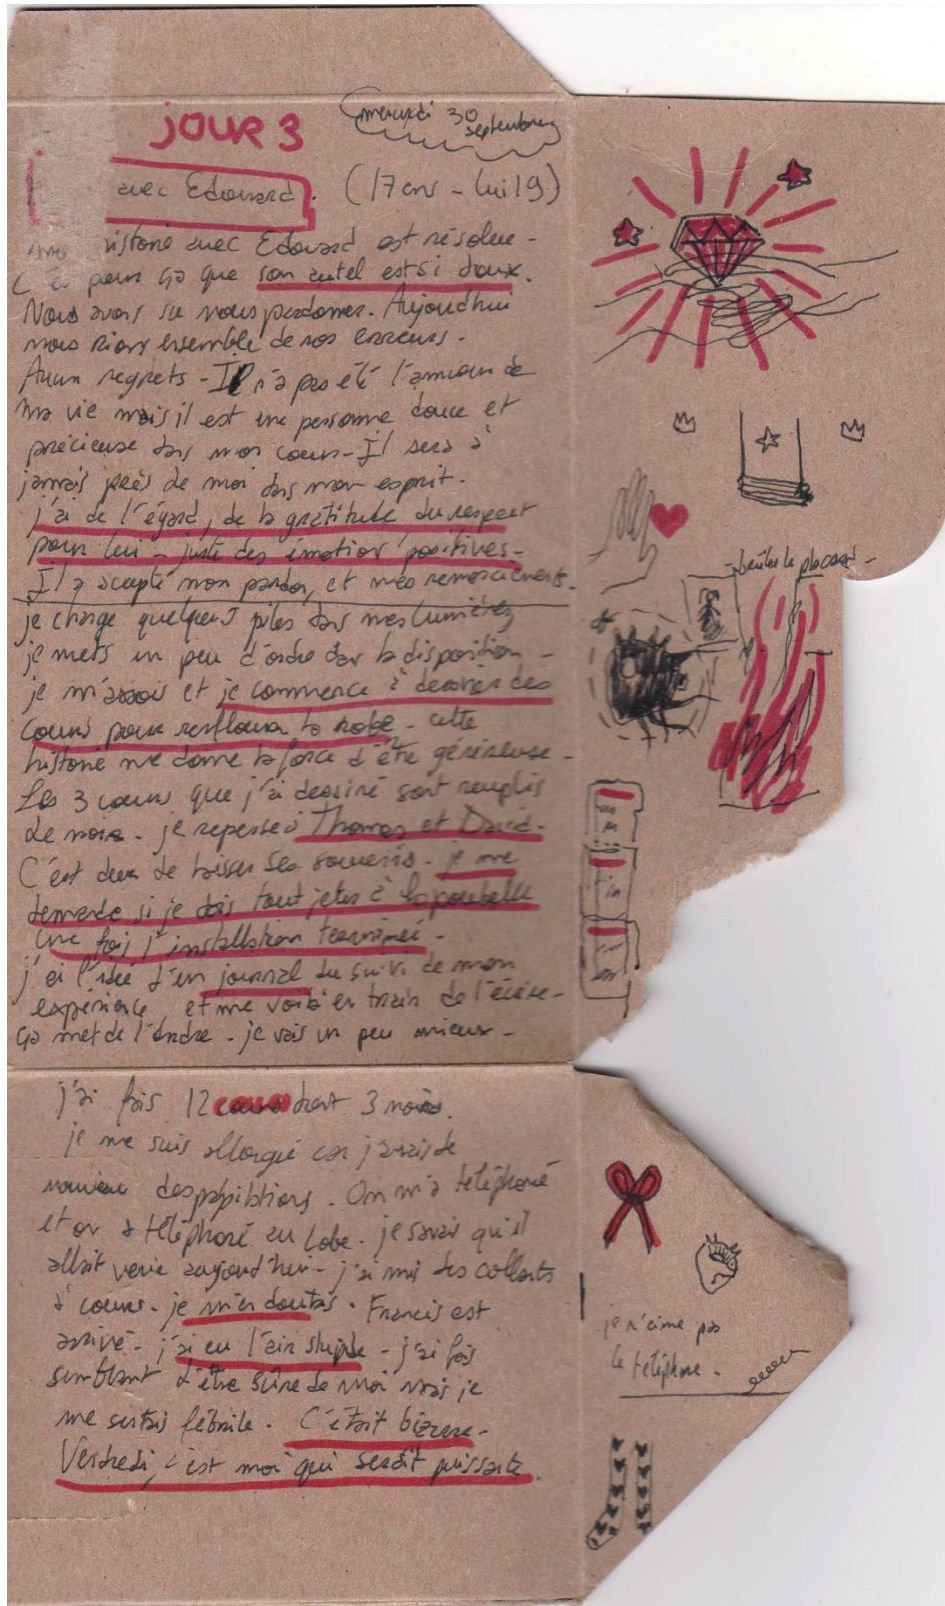 JOUR 3
mercredi 30
septembre
avec Edouard. (17 ans - lui 19)
histoire avec Edouard est résolue -
pour ça que son autel est si doux.
Nous avons su nous pardonner. Aujourd'hui
nous rions ensemble de nos erreurs.
Aucun regrets - Il n'a pas été l'amour de
ma vie mais il est une personne douce et
précieuse dans mon coeur - Il sera à
jamais près de moi dans mon esprit.
j'ai de l'égard, de la gratitude du respect
pour lui - juste des émotion positives -
Il a accepté mon pardon, et mes remerciements.
je change quelques piles dans mes lumières
je mets un peu d'ordre dans la disposition -
je m'assois et je commence à dessiner des
coeurs pour renflouer la robe - cette
histoire me donne la force d'être généreuse -
Les 3 coeurs que j'ai dessiné sont remplis
de noirs. je repense à Thomas et David.
C'est deux de laisser ses souvenirs. je me
demande si je dois tout jeter à la poubelle
une fois l'installation terminée.
j'ai l'idée d'un journal du suivi de mon
expérience et me voilà en train de l'écrire -
ça met de l'ordre. je vais un peu mieux -
j'ai fais 12 coeurs dont 3 noirs.
je me suis allongée car j'avais de
nouveau des palpitations. On m'a téléphoné
et on a téléphoné au Lobe. je savais qu'il
allait venir aujourd'hui - j'ai mis des collants
à coeurs. je m'en doutais. Francis est
arrivé - j'ai eu l'air stupide - j'ai fais
semblant d'être sûre de moi mais je
me sentais fébrile. C'était bizarre -
Vendredi, c'est moi qui serait puissante.
brûler le placard -
je n'aime pas
le téléphone.